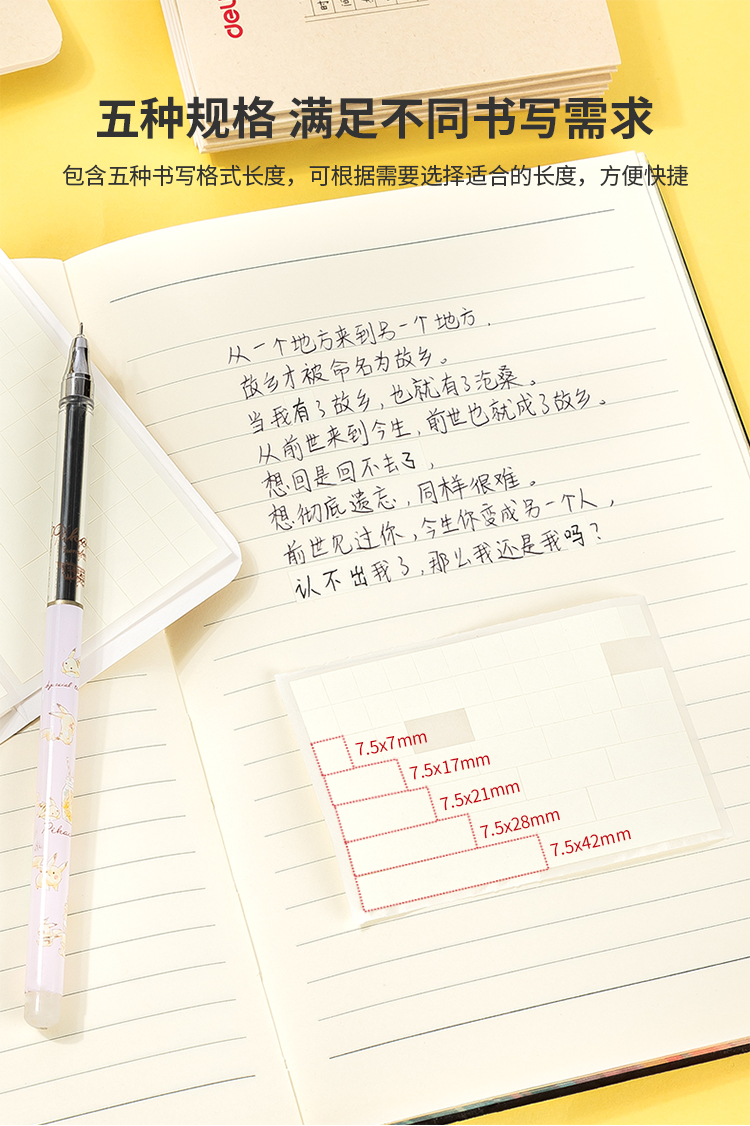 deli
五种规格 满足不同书写需求
包含五种书写格式长度，可根据需要选择适合的长度，方便快捷
从一个地方来到另一个地方，
故乡才被命名为故乡。
当我有了故乡，也就有了沧桑。
从前世来到今生，前世也就成了故乡。
想回是回不去了，
想彻底遗忘，同样很难。
前世见过你，今生你变成另一个人，
认不出我了，那么我还是我吗？
7.5x7mm
7.5x17mm
7.5x21mm
7.5x28mm
7.5x42mm